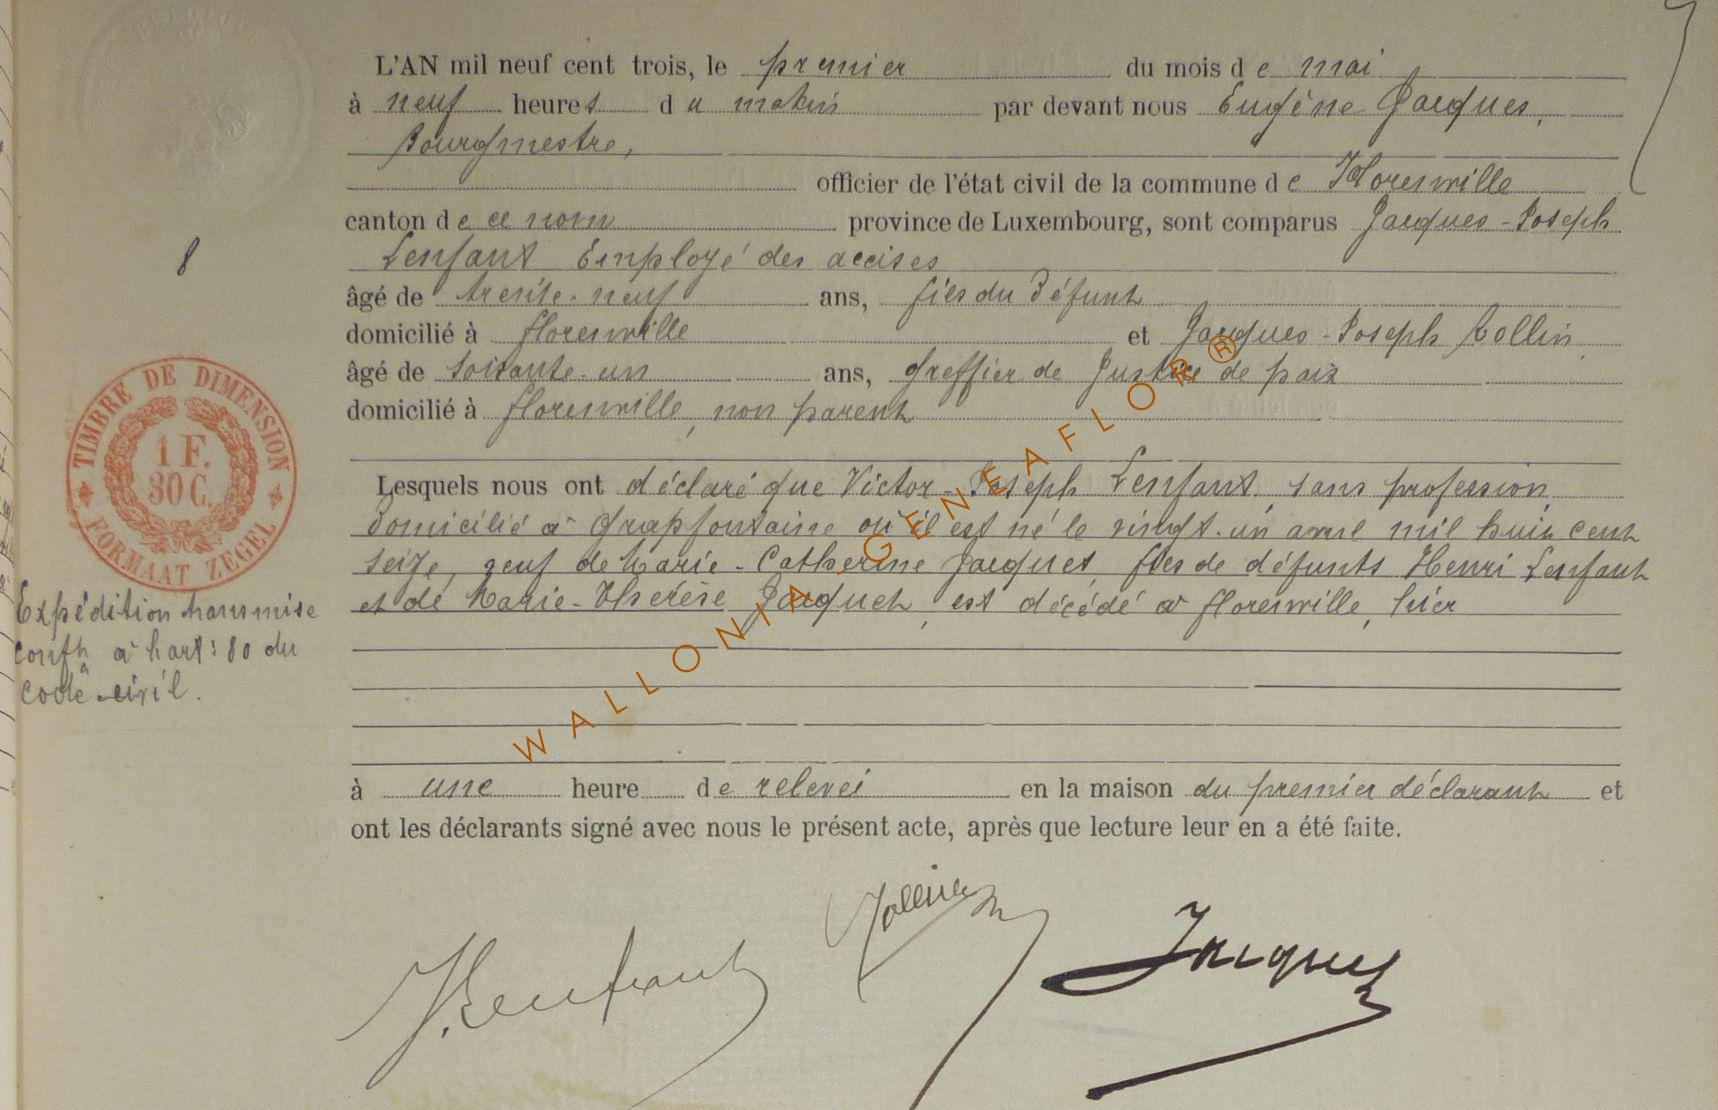 L'AN mil neuf cent trois, le premier du mois de mai
à neuf heures du matin par devant nous Eugène Jacques,
Bourgmestre,
officier de l'état civil de la commune de Florenville
canton de ce nom province de Luxembourg, sont comparus Jacques-Joseph
Lenfant Employé des accises
âgé de trente-neuf ans, fils du défunt
domicilié à florenville et Jacques-Joseph Collin,
âgé de soixante-un ans, greffier de Justice de paix
domicilié à florenville, non parent
Lesquels nous ont déclaré que Victor-Joseph Lenfant, sans profession,
domicilié à Grapfontaine où il est né le vingt-un avril mil huit cent
seize, veuf de Marie-Catherine Jacquet, fils de défunts Henri Lenfant
et de Marie-Thérèse Jacquet, est décédé à florenville, hier
à une heure de relevée en la maison du premier déclarant et
ont les déclarants signé avec nous le présent acte, après que lecture leur en a été faite.
J. Lenfant
Collin
Jacques
8
TIMBRE DE DIMENSION
1 F.
30 C.
FORMAAT ZEGEL
Expédition transmise
conft à l'art: 80 du
code civil.
WALLONIA GENEAFLOR®